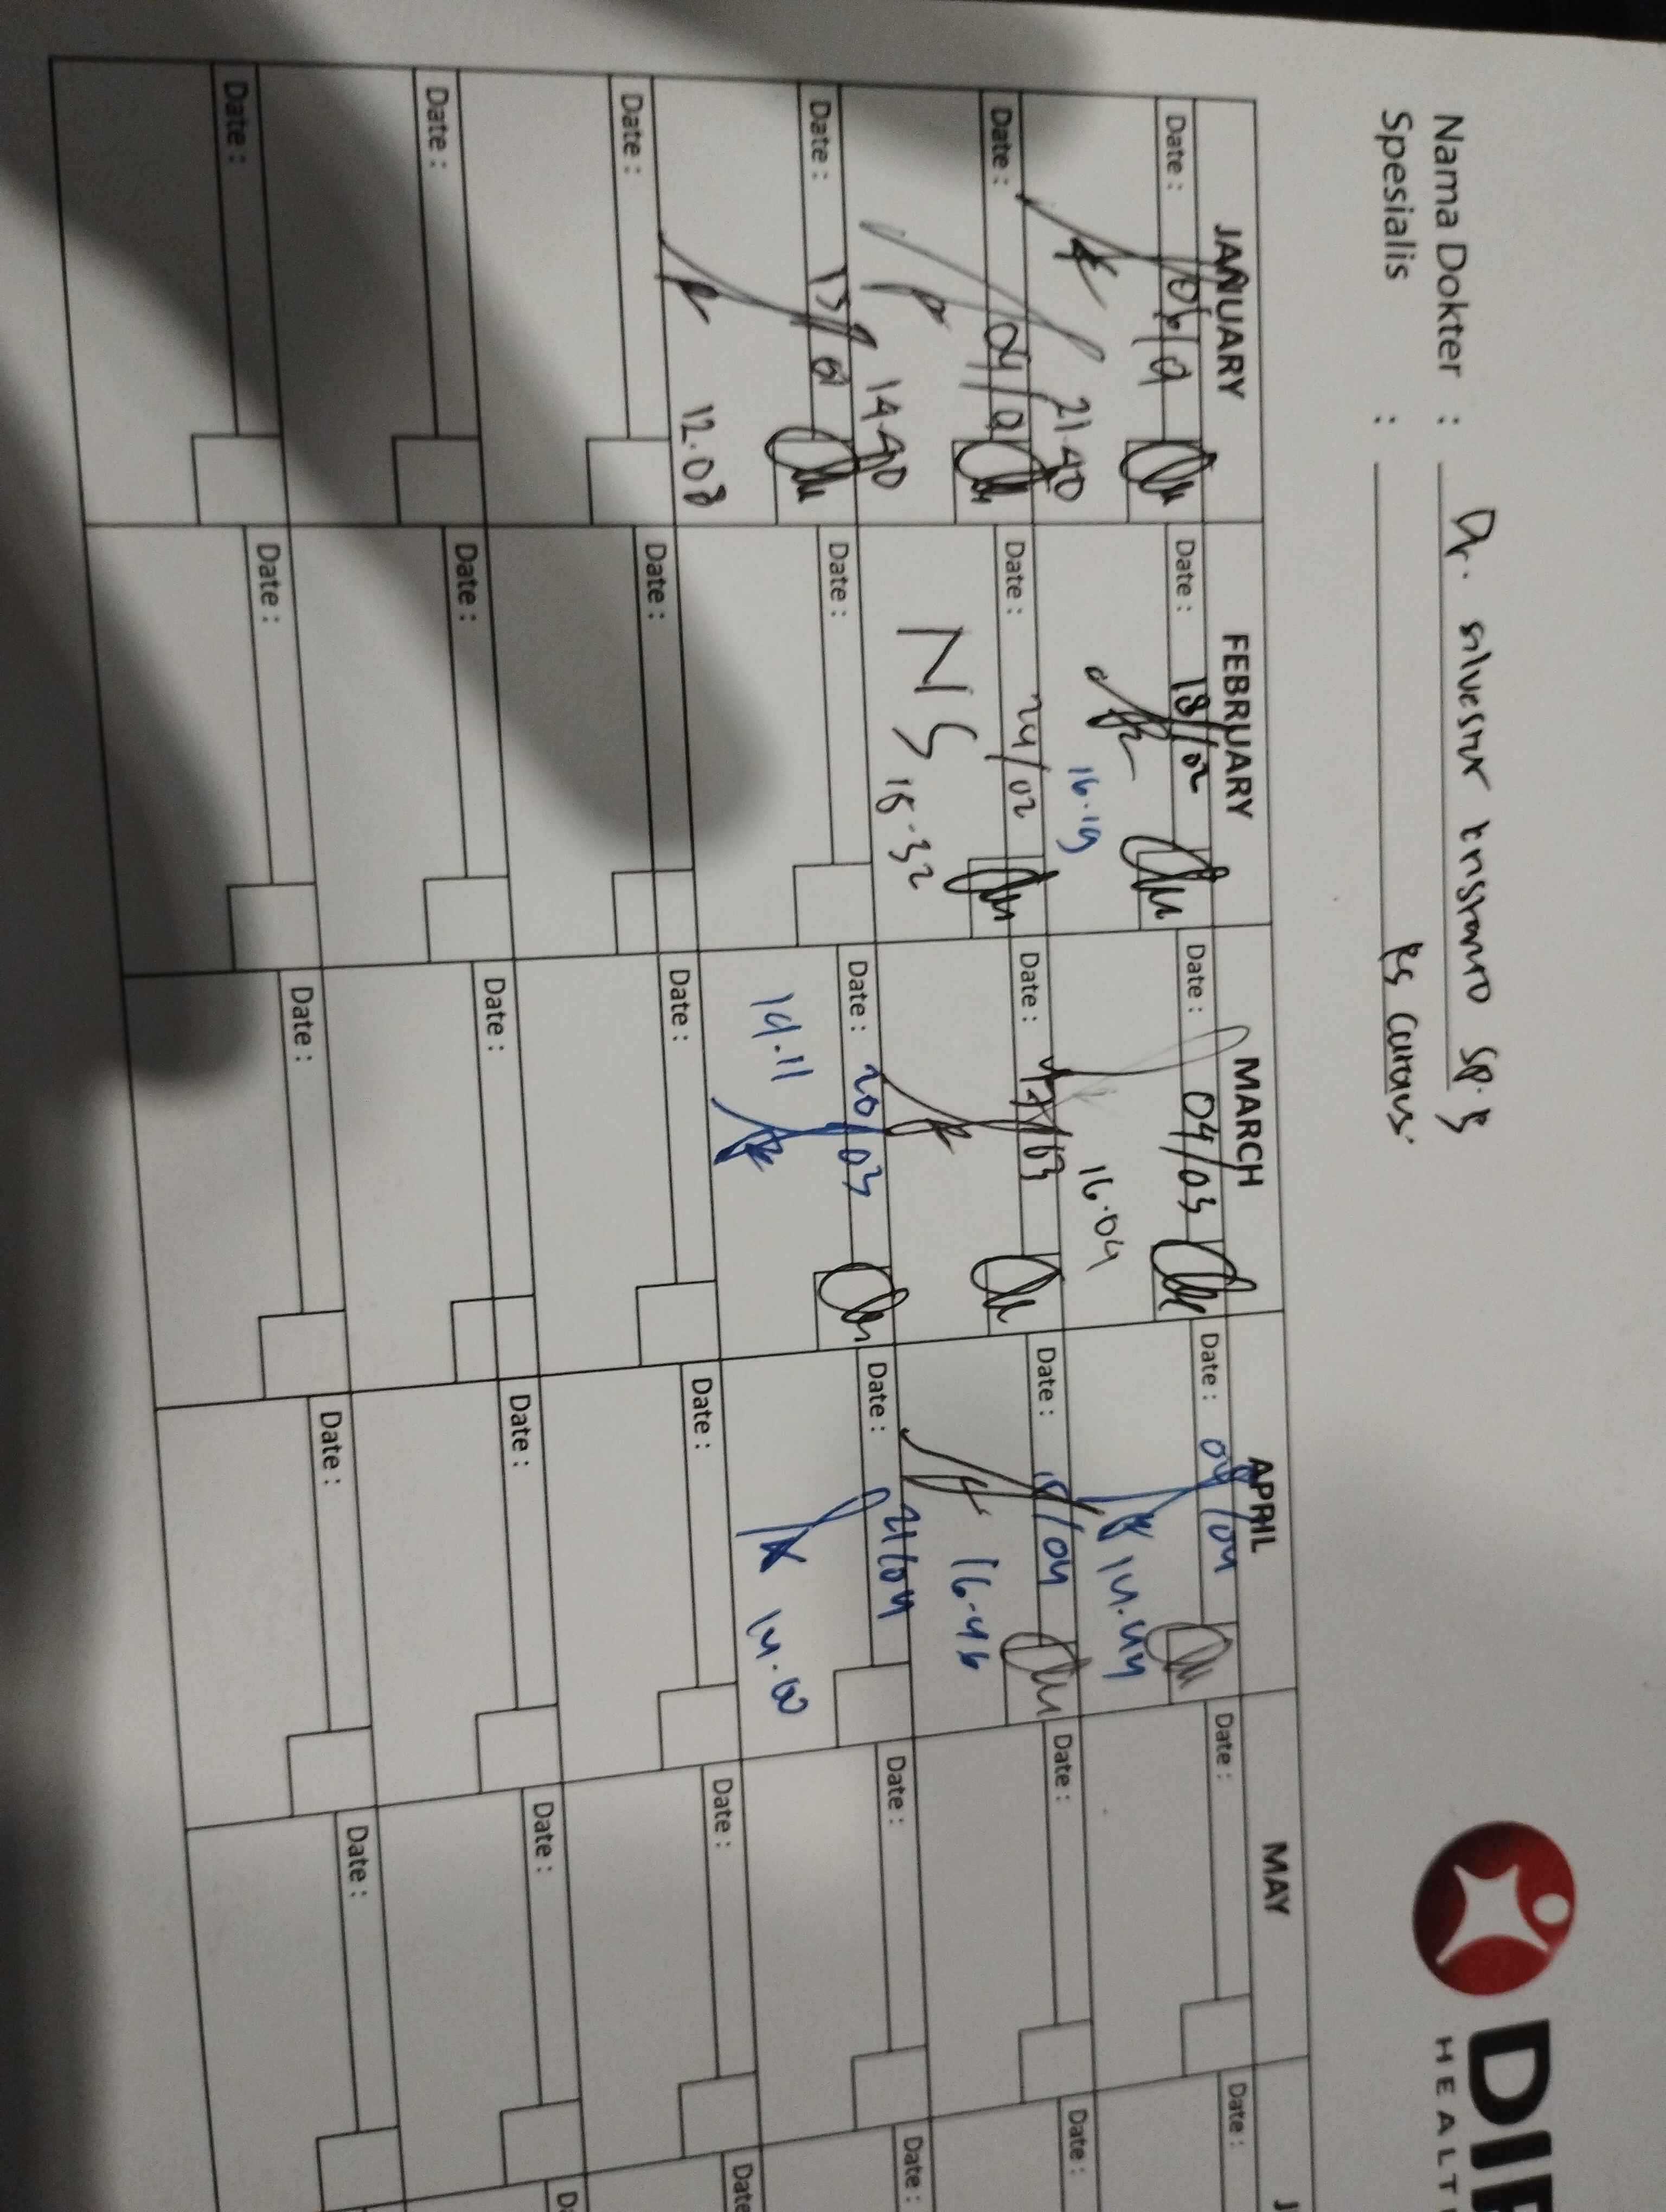 DIP
HEALT
Nama Dokter : Dr. silvester kristanto sp.B
Spesialis : RS Carolus
JANUARY FEBRUARY MARCH APRIL MAY J
Date : 06/01 Date : 18/02 Date : 04/03 Date : 04/04 Date : Date :
21.40 16.19 16.04 14.44
Date : 04/01 Date : 24/02 Date : 17/03 Date : 15/04 Date : Date :
14.40 NS 15.32 16.46
Date : 13/01 Date : Date : 20/03 Date : 21/04 Date : Date :
12.08 14.11 14.00
Date : Date : Date : Date : Date : Date
Date : Date : Date : Date : Date : Da
Date : Date : Date : Date : Date :